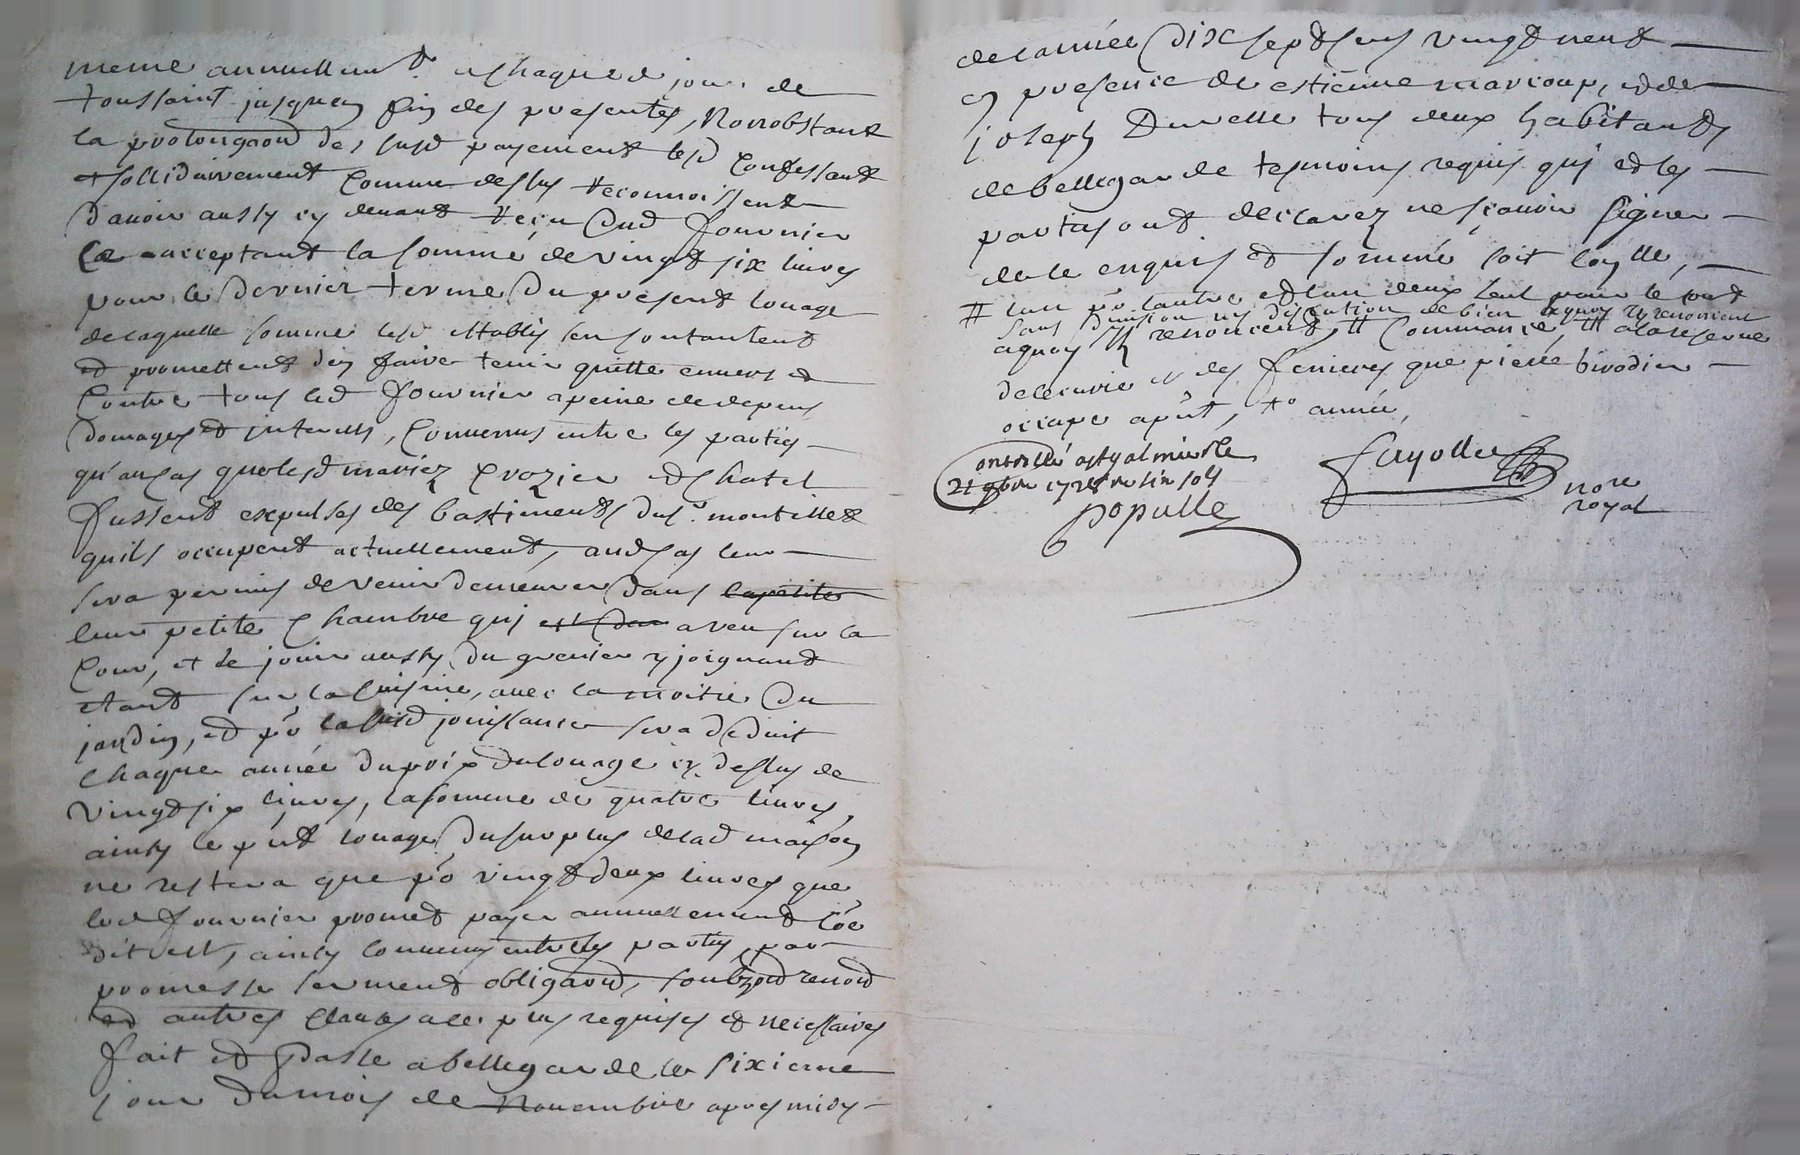 meme annuellemt a chaque jour de
toussaint jusquen fin des presentes, Nonobstant
la prolongaon des susd payement lesd Confessants
et sollidairement Comme dessus reconnoissent
Davoir aussy cy devant receu dud fournier
Ce acceptant la somme de vingt six livres
pour le Dernier terme Du present louage
de laquelle somme lesd establis sen contentent
et promettent den faire tenir quitte envers et
Contre tous led fournier a peine de depens
Domages et interests, Convenus entre les parties
qu'au cas que lesd mariez Crozier et Chatel
fussent expulses des bastiments du sr montillet
quils occupent actuellement, aud cas leur
sera permis de venir demeurer dans la petite
leur petite Chambre qui est dan a veu sur la
Cour, et de jouir aussy du grenier y joignant
etant sur la Cuisine, avec la moitié Du
jardin, et pr lasusd jouissance sera deduit
Chaque année du prix du louage cy dessus de
Vingt six livres, la somme de quatre livres,
ainsy le pnt louage Du surplus de lad maison
ne restera que pr vingt deux livres que
led fournier promet payer annuellement Coe
dit est, ainsy Convenu entre les parties par
promesse serment obligaon, soubzon renon
et autres Clauses a ce plus requises et necessaires
fait et Passe a bellegarde le sixieme
jour Du mois de Novembre apres midy
de lannée Dix sept cens vingt neuf
en presence de estienne marcoup, et de
joseph Durelle tous deux habitants
de bellegarde tesmoins requis qui et les
parties ont declarez ne scavoir signer
de ce enquis et sommé soit Coylle,
# lun pr lautre et lun deux seul pour le tout
sans division ny discution de bien a quoy ils renoncent
aquoy ils renoncent, # Commance, # a la reserve
de lecurie et des fenieres que pierre birodier
occupe apnt, to année,
Controllé a st galmier le
21 9bre 1729 re six sols
Populle
Fayolle
nore
royal